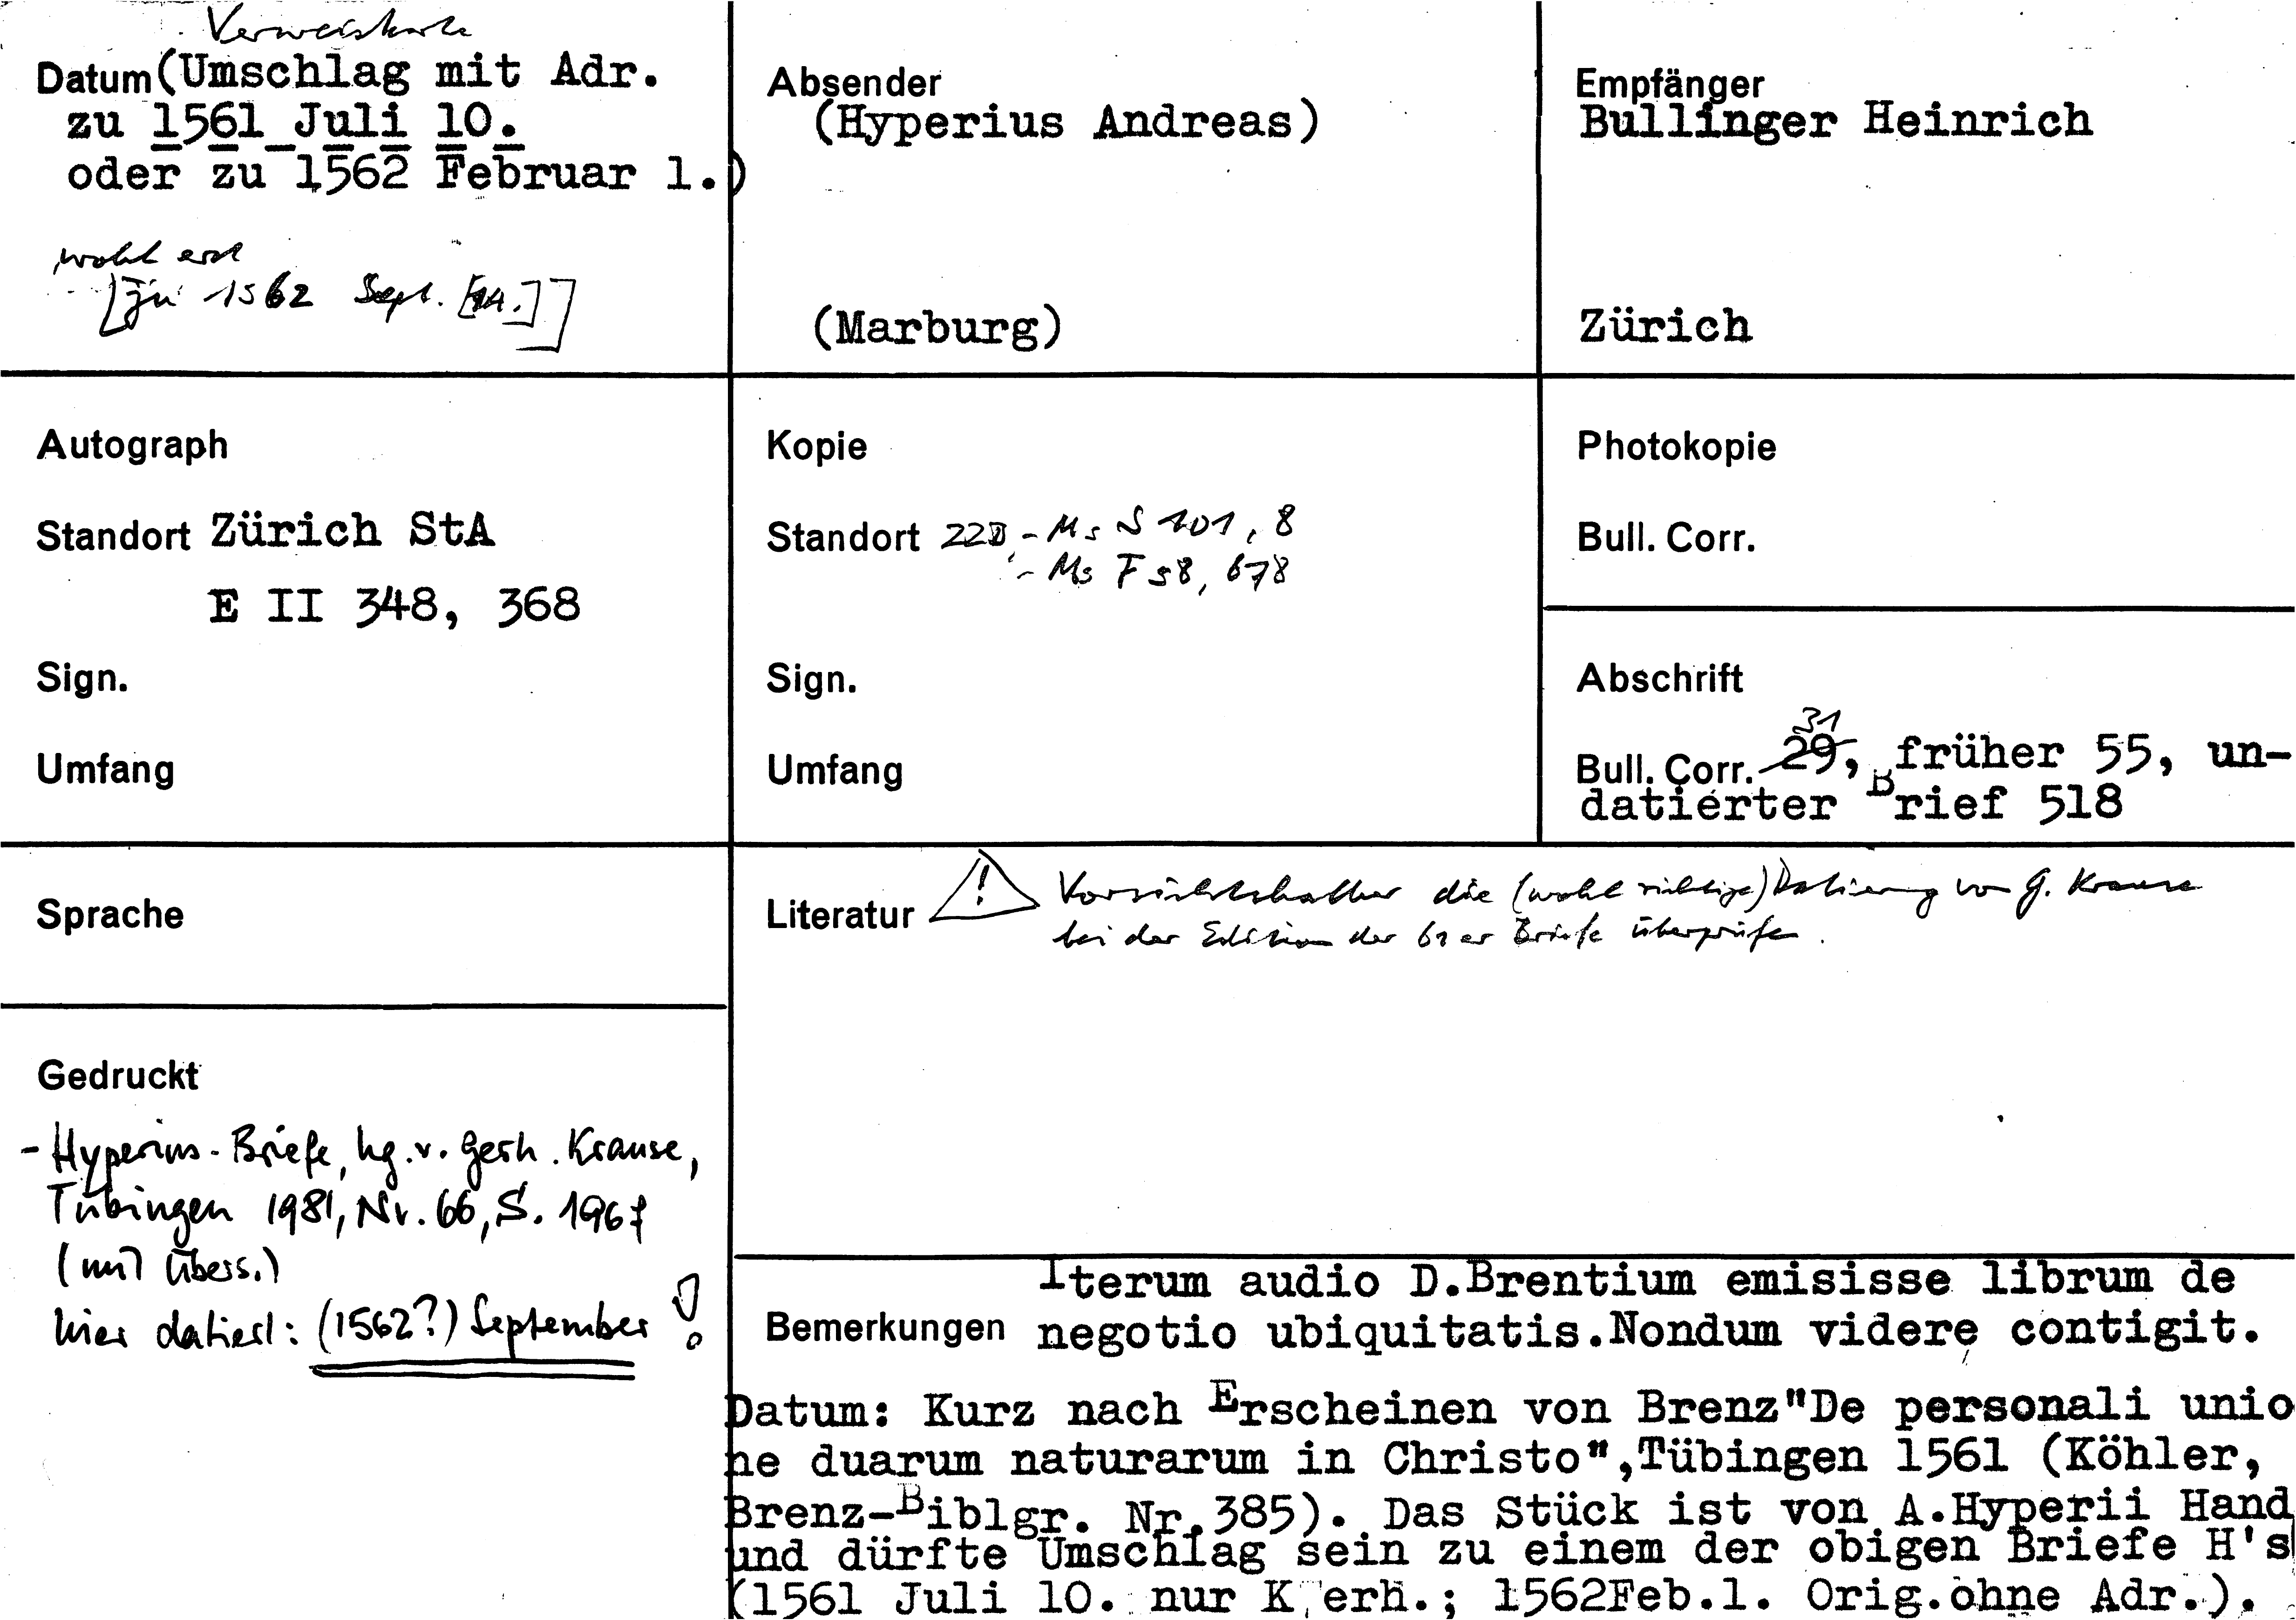 Verweiskarte
Datum (Umschlag mit Adr.
zu 1561 Juli 10.
oder zu 1562 Februar 1.)
wohl erst
[zu 1562 Sept. [14.]]
Absender
(Hyperius Andreas)
(Marburg)
Empfänger
Bullinger Heinrich
Zürich
Autograph
Standort Zürich StA
E II 348, 368
Sign.
Umfang
Kopie
Standort ZZB, - Ms S 101, 8
- Ms F 58, 678
Sign.
Umfang
Photokopie
Bull. Corr.
Abschrift
31
Bull. Corr. 29, früher 55, un-
datierter Brief 518
Sprache
Literatur ! Vorsichtshalber die (wohl richtige) Datierung von G. Krause
bei der Edition der 61er Briefe überprüfen.
Gedruckt
- Hyperius-Briefe, hg. v. Gerh. Krause,
Tübingen 1981, Nr. 66, S. 196f
(mit Übers.)
hier datiert: (1562?) September !
Bemerkungen
Iterum audio D.Brentium emisisse librum de
negotio ubiquitatis.Nondum videre contigit.
Datum: Kurz nach Erscheinen von Brenz"De personali unio
ne duarum naturarum in Christo",Tübingen 1561 (Köhler,
Brenz-Biblgr. Nr.385). Das Stück ist von A.Hyperii Hand
und dürfte Umschlag sein zu einem der obigen Briefe H's
(1561 Juli 10. nur K erh.; 1562Feb.1. Orig.ohne Adr.).